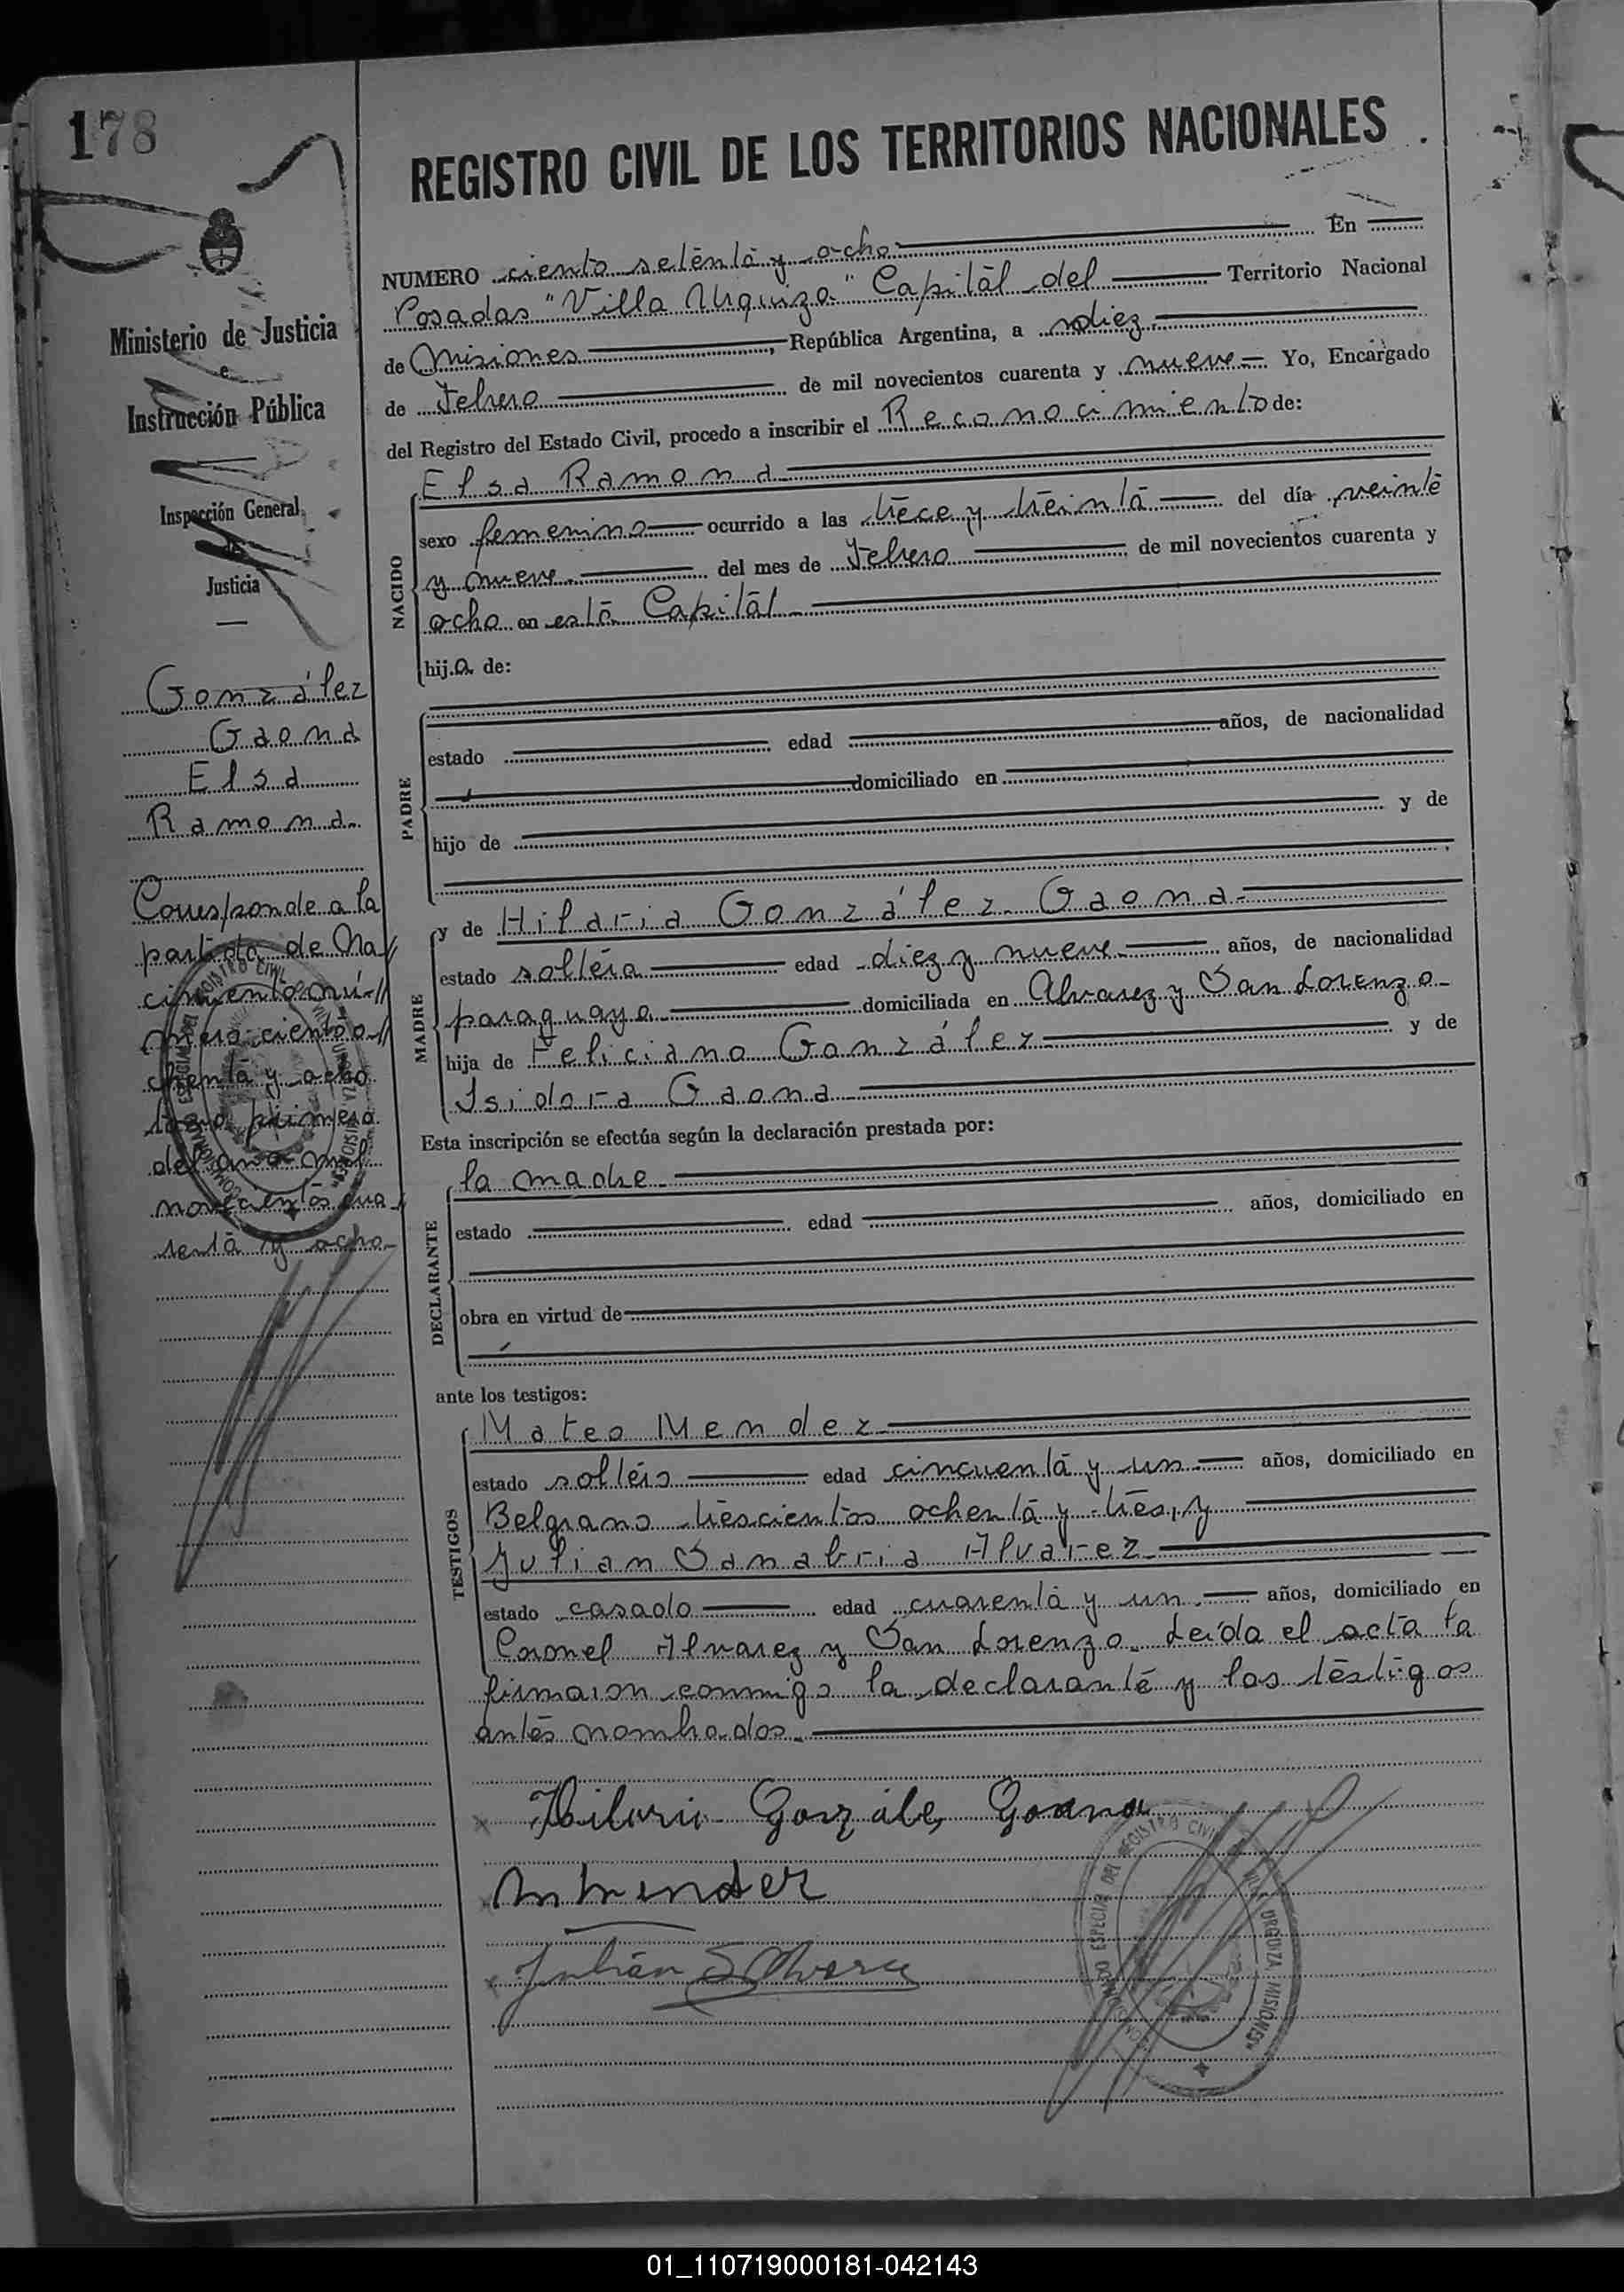 178
REGISTRO CIVIL DE LOS TERRITORIOS NACIONALES
Ministerio de Justicia
e
Instrucción Pública
Inspección General
de
Justicia
González
Gaona
Elsa
Ramona
Corresponde a la
partida de Na//
cimiento nú-//
mero ciento o//
chenta y ocho
tomo primero
del año mil
novecientos cua-/
renta y ocho.
NUMERO ciento setenta y ocho En
Posadas "Villa Urquiza" Capital del Territorio Nacional
de Misiones, República Argentina, a diez
de Febrero de mil novecientos cuarenta y nueve Yo, Encargado
del Registro del Estado Civil, procedo a inscribir el Reconocimiento de:
NACIDO
Elsa Ramona
sexo femenino ocurrido a las trece y treinta del día veinte
y nueve del mes de Febrero de mil novecientos cuarenta y
ocho en esta Capital
hija de:
PADRE
estado edad años, de nacionalidad
domiciliado en
hijo de y de
MADRE
y de Hilaria González Gaona
estado soltera edad diez y nueve años, de nacionalidad
paraguaya domiciliada en Alvarez y San Lorenzo
hija de Feliciano González y de
Isidora Gaona
Esta inscripción se efectúa según la declaración prestada por:
DECLARANTE
la madre
estado edad años, domiciliado en
obra en virtud de
ante los testigos:
TESTIGOS
Mateo Mendez
estado soltero edad cincuenta y un años, domiciliado en
Belgrano trescientos ochenta y tres, y
Julian Sanabria Alvarez
estado casado edad cuarenta y un años, domiciliado en
Coronel Alvarez y San Lorenzo. Leída el acta la
firmaron conmigo la declarante y los testigos
antes nombrados.
Hilaria Gonzále Gaona
M Mendez
Julián S Alvarez
REGISTRO CIVIL
MISIONES
01_110719000181-042143